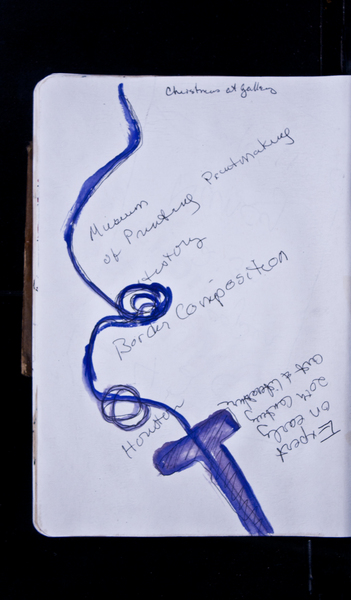 Christmas at gallery
Museum
of Printing Printmaking
History
Border Composition
Houston
Expert
on early
20th Century
art & literature